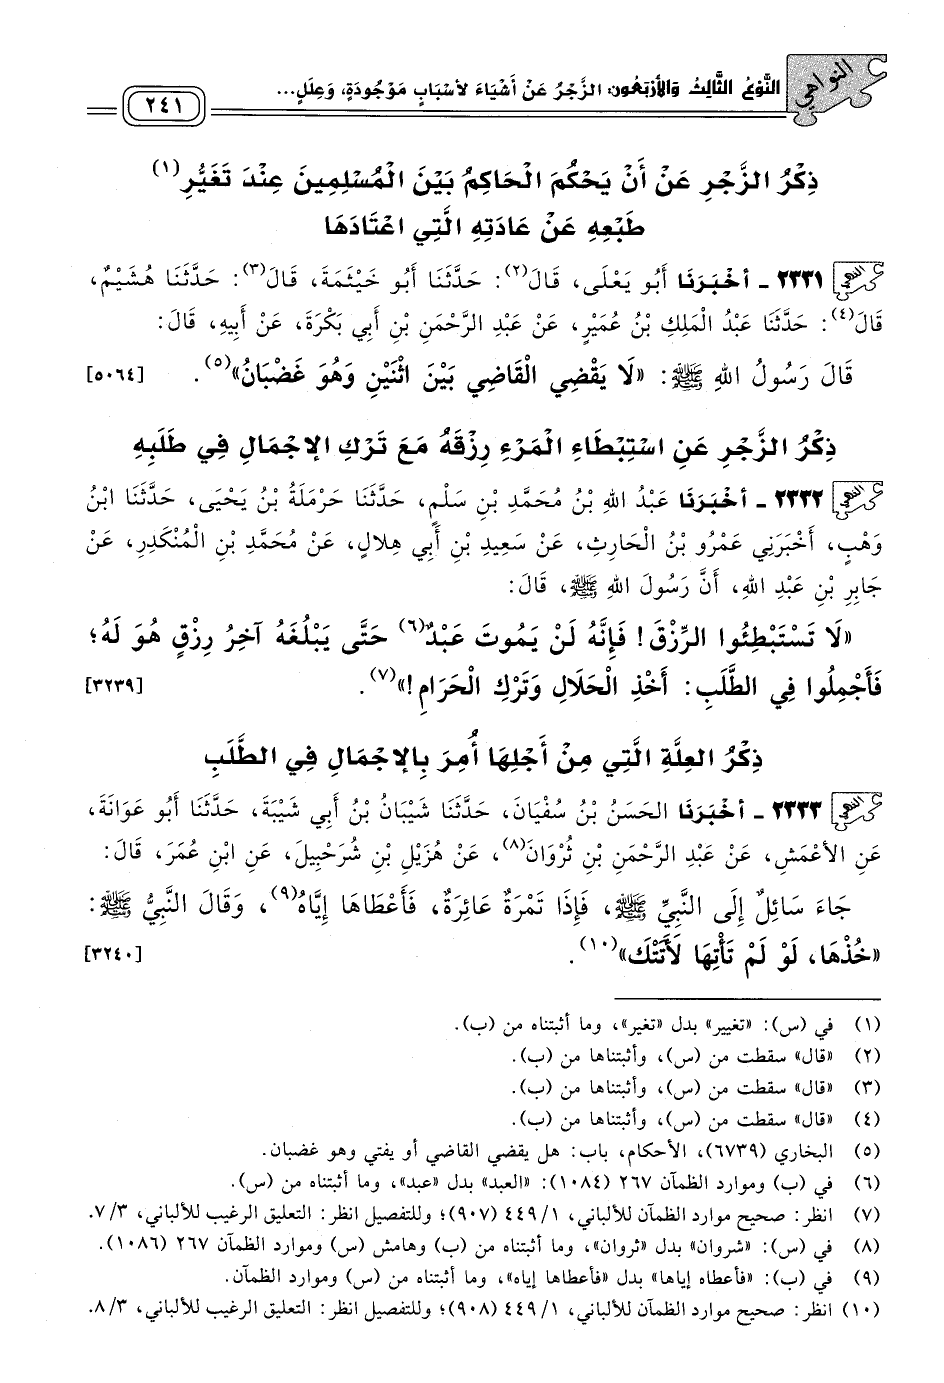 النواهي
النَّوْعُ الثَّالِثُ وَالأَرْبَعُون: الزَّجْرُ عَنْ أَشْيَاءَ لأَسْبَابٍ مَوْجُودَةٍ، وَعِلَلٍ...
٢٤١
ذِكْرُ الزَّجْرِ عَنْ أَنْ يَحْكُمَ الْحَاكِمُ بَيْنَ الْمُسْلِمِينَ عِنْدَ تَغَيُّرِ(١)
طَبْعِهِ عَنْ عَادَتِهِ الَّتِي اعْتَادَهَا
٢٣٣١ - أَخْبَرَنَا أَبُو يَعْلَى، قَالَ(٢): حَدَّثَنَا أَبُو خَيْثَمَةَ، قَالَ(٣): حَدَّثَنَا هُشَيْمٌ،
قَالَ(٤): حَدَّثَنَا عَبْدُ الْمَلِكِ بْنُ عُمَيْرٍ، عَنْ عَبْدِ الرَّحْمَنِ بْنِ أَبِي بَكْرَةَ، عَنْ أَبِيهِ، قَالَ:
قَالَ رَسُولُ اللهِ ﷺ: «لَا يَقْضِي الْقَاضِي بَيْنَ اثْنَيْنِ وَهُوَ غَضْبَانُ»(٥). [٥٠٦٤]
ذِكْرُ الزَّجْرِ عَنِ اسْتِبْطَاءِ الْمَرْءِ رِزْقَهُ مَعَ تَرْكِ الإِجْمَالِ فِي طَلَبِهِ
٢٣٣٢ - أَخْبَرَنَا عَبْدُ اللهِ بْنُ مُحَمَّدِ بْنِ سَلْمٍ، حَدَّثَنَا حَرْمَلَةُ بْنُ يَحْيَى، حَدَّثَنَا ابْنُ
وَهْبٍ، أَخْبَرَنِي عَمْرُو بْنُ الْحَارِثِ، عَنْ سَعِيدِ بْنِ أَبِي هِلَالٍ، عَنْ مُحَمَّدِ بْنِ الْمُنْكَدِرِ، عَنْ
جَابِرِ بْنِ عَبْدِ اللهِ، أَنَّ رَسُولَ اللهِ ﷺ، قَالَ:
«لَا تَسْتَبْطِئُوا الرِّزْقَ! فَإِنَّهُ لَنْ يَمُوتَ عَبْدٌ(٦) حَتَّى يَبْلُغَهُ آخِرُ رِزْقٍ هُوَ لَهُ؛
فَأَجْمِلُوا فِي الطَّلَبِ: أَخْذِ الْحَلَالِ وَتَرْكِ الْحَرَامِ!»(٧). [٣٢٣٩]
ذِكْرُ الْعِلَّةِ الَّتِي مِنْ أَجْلِهَا أُمِرَ بِالإِجْمَالِ فِي الطَّلَبِ
٢٣٣٣ - أَخْبَرَنَا الْحَسَنُ بْنُ سُفْيَانَ، حَدَّثَنَا شَيْبَانُ بْنُ أَبِي شَيْبَةَ، حَدَّثَنَا أَبُو عَوَانَةَ،
عَنِ الأَعْمَشِ، عَنْ عَبْدِ الرَّحْمَنِ بْنِ ثَرْوَانَ(٨)، عَنْ هُزَيْلِ بْنِ شُرَحْبِيلَ، عَنِ ابْنِ عُمَرَ، قَالَ:
جَاءَ سَائِلٌ إِلَى النَّبِيِّ ﷺ، فَإِذَا تَمْرَةٌ عَائِرَةٌ، فَأَعْطَاهَا إِيَّاهُ(٩)، وَقَالَ النَّبِيُّ ﷺ:
«خُذْهَا، لَوْ لَمْ تَأْتِهَا لَأَتَتْكَ»(١٠). [٣٢٤٠]
(١) في (س): «تغيير» بدل «تغير»، وما أثبتناه من (ب).
(٢) «قال» سقطت من (س)، وأثبتناها من (ب).
(٣) «قال» سقطت من (س)، وأثبتناها من (ب).
(٤) «قال» سقطت من (س)، وأثبتناها من (ب).
(٥) البخاري (٦٧٣٩)، الأحكام، باب: هل يقضي القاضي أو يفتي وهو غضبان.
(٦) في (ب) وموارد الظمآن ٢٦٧ (١٠٨٤): «العبد» بدل «عبد»، وما أثبتناه من (س).
(٧) انظر: صحيح موارد الظمآن للألباني، ١/ ٤٤٩ (٩٠٧)؛ وللتفصيل انظر: التعليق الرغيب للألباني، ٣/ ٧.
(٨) في (س): «شروان» بدل «ثروان»، وما أثبتناه من (ب) وهامش (س) وموارد الظمآن ٢٦٧ (١٠٨٦).
(٩) في (ب): «فأعطاه إياها» بدل «فأعطاها إياه»، وما أثبتناه من (س) وموارد الظمآن.
(١٠) انظر: صحيح موارد الظمآن للألباني، ١/ ٤٤٩ (٩٠٨)؛ وللتفصيل انظر: التعليق الرغيب للألباني، ٣/ ٨.